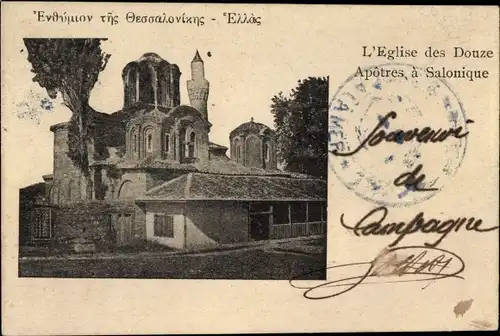 Ἐνθύμιον τῆς Θεσσαλονίκης - Ἑλλὰς
L'Eglise des Douze
Apôtres à Salonique
Souvenir
de
Campagne